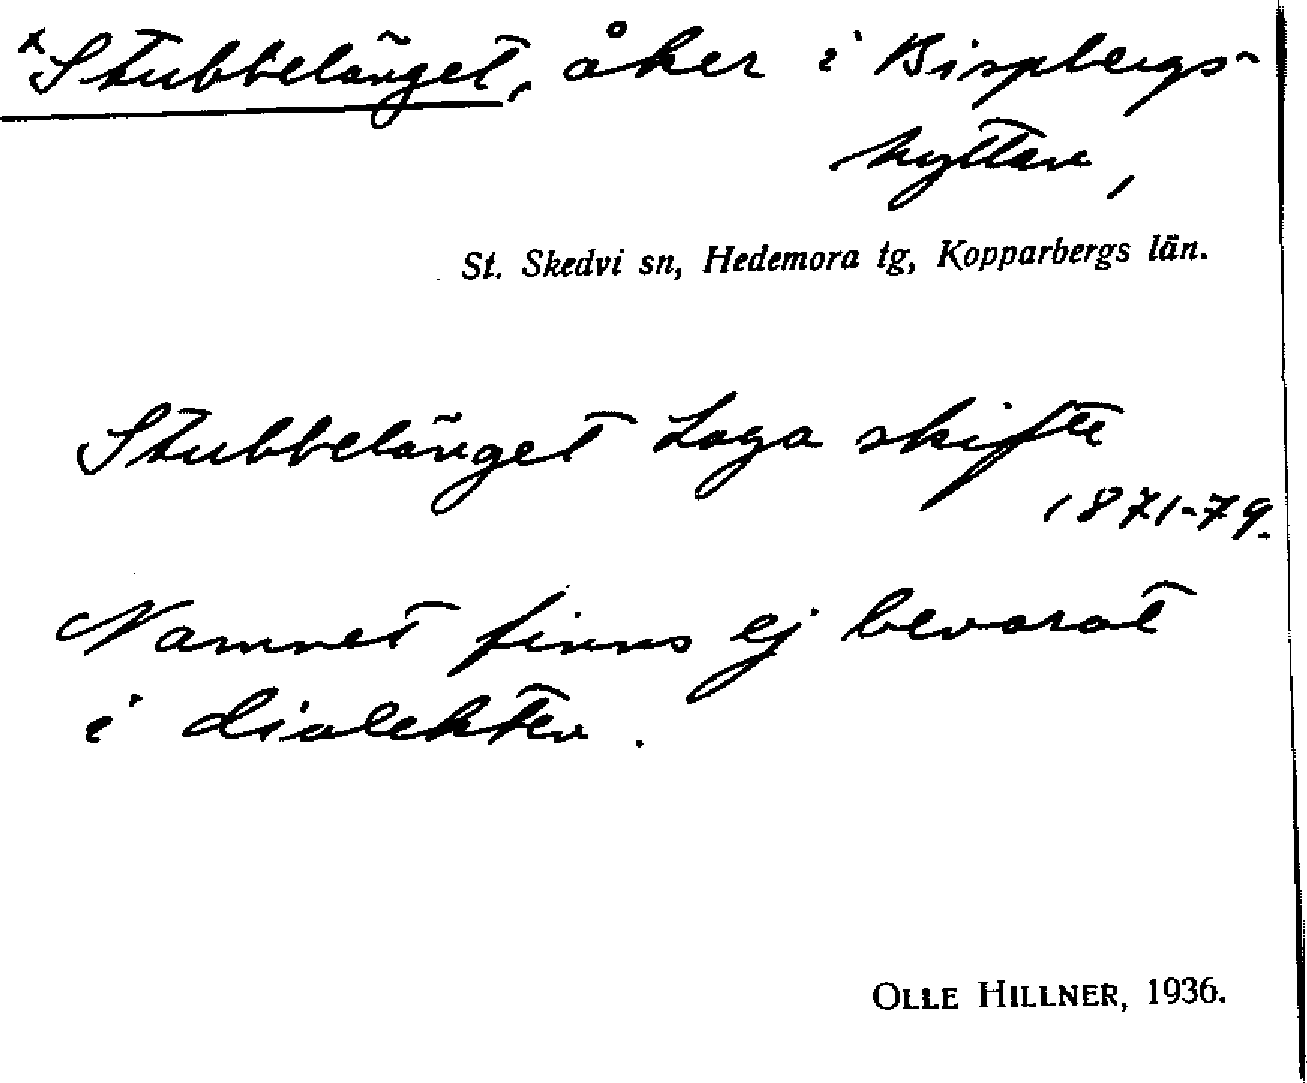 *Stubbelänget, åker i Bispbergs-
hyttan,
St. Skedvi sn, Hedemora tg, Kopparbergs län.
Stubbelänget Laga skifte
1871-79.
Namnet finns ej bevarat
i dialekten.
OLLE HILLNER, 1936.